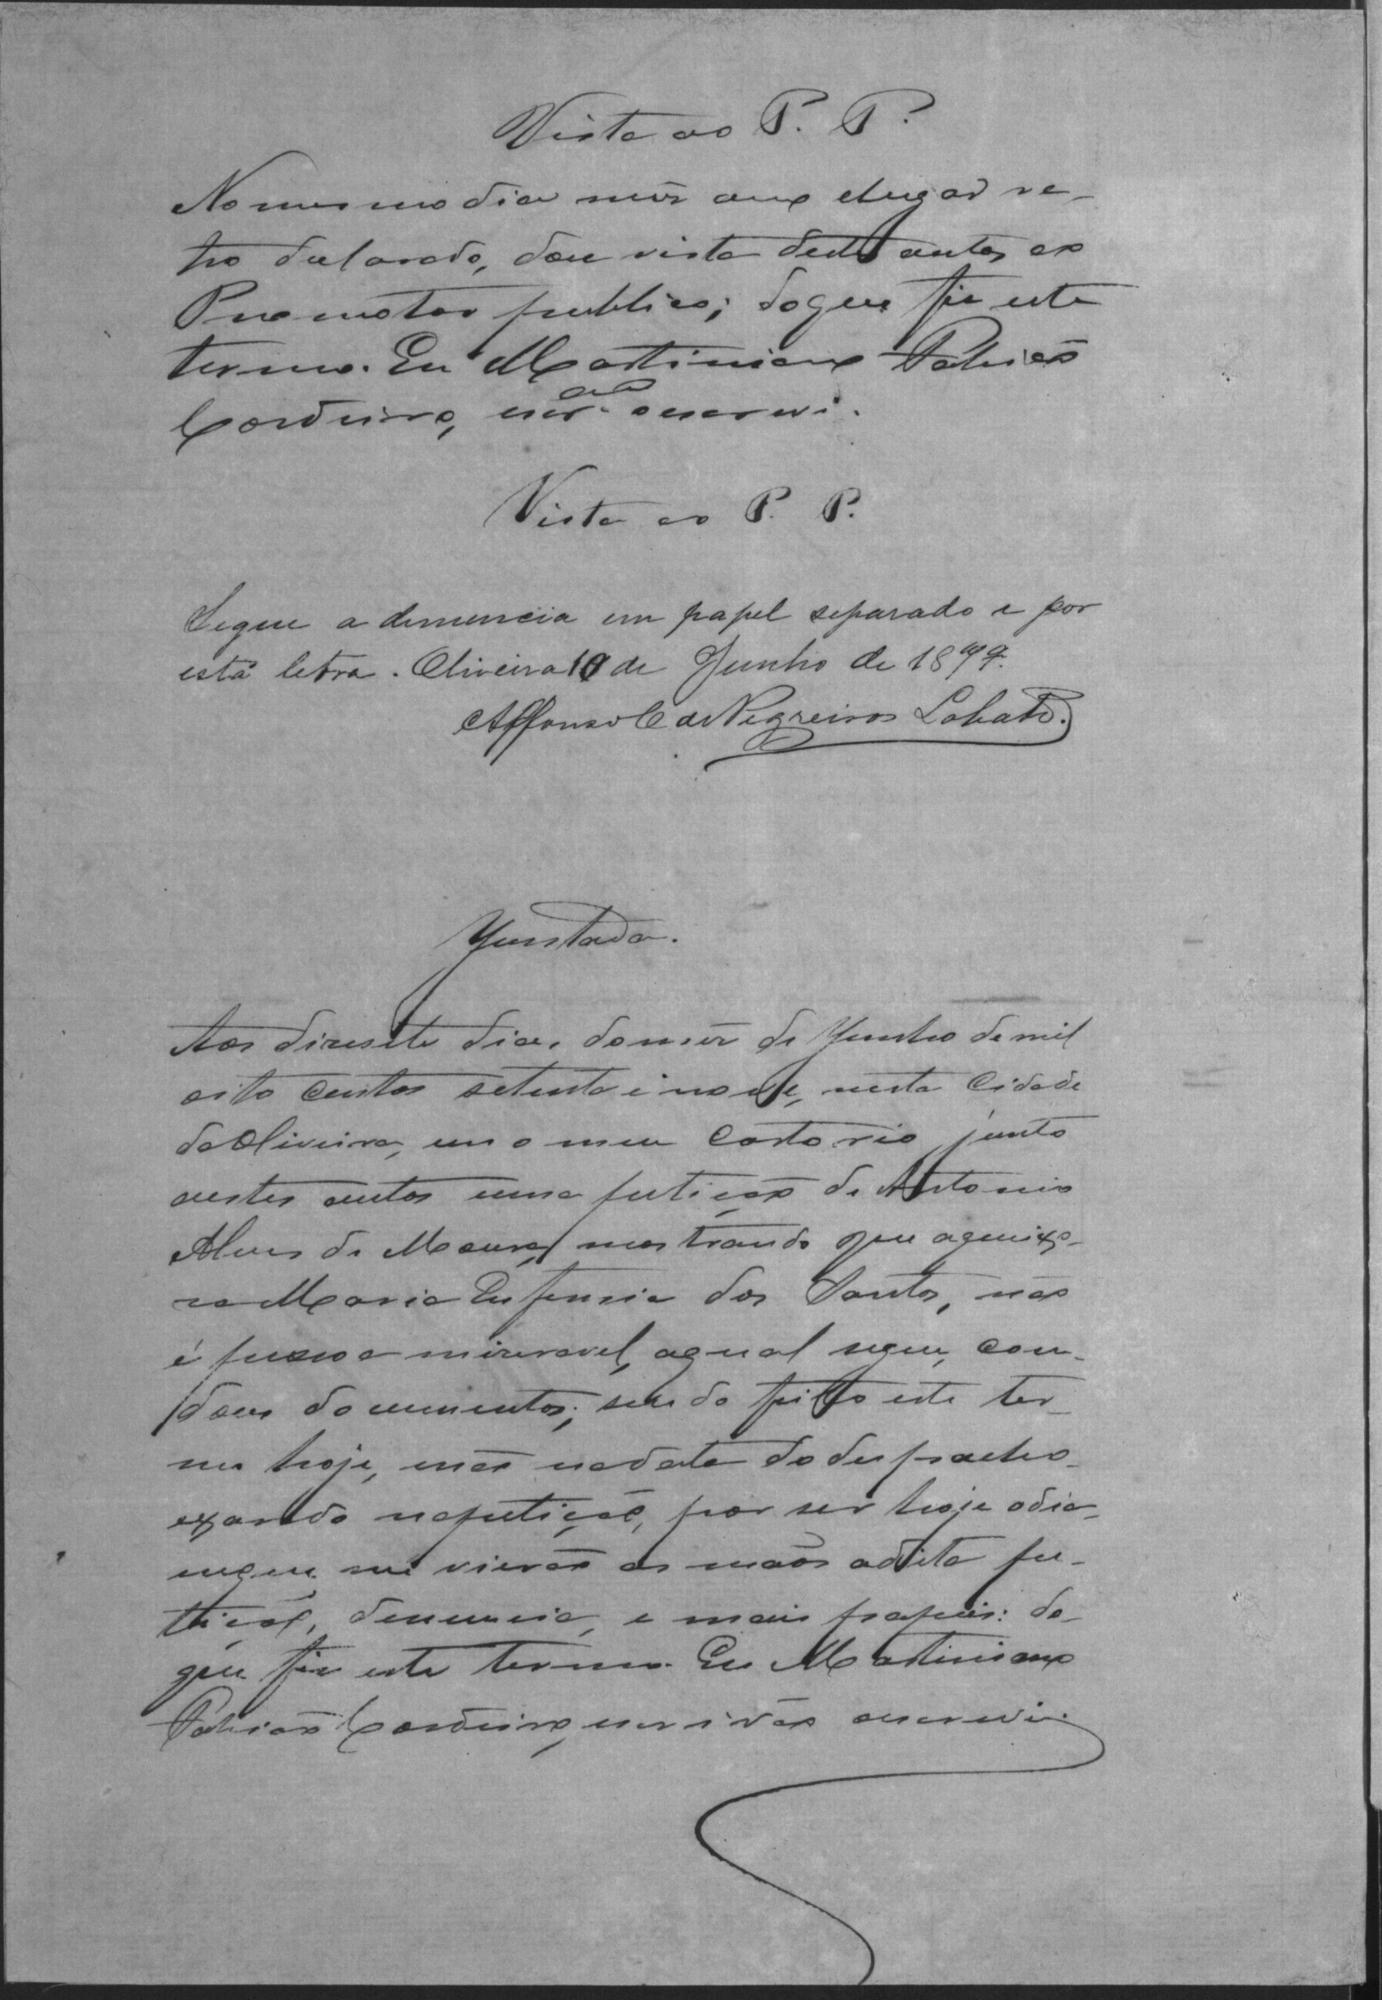 Vista ao P. P.
No mesmo dia mês anno e lugar re-
tro declarado, dou vista destes autos ao
Promotor publico; do que fiz este
termo. Eu Martiniano
Cordeiro, escr.am o escrevi.
Vista ao P. P.
Segue a denuncia em papel separado e por
esta letra. Oliveira 10 de Junho de 1879.
Affonso C de Negreiros Lobato.
Juntada.
Aos desesete dias do mês de Junho de mil
oito centos setenta e nove, nesta Cidade
da Oliveira, em o meu Cartorio, junto
aestes autos uma petição de Antonio
Alves de Moura, mostrando que a queixo-
sa Maria Eufemia dos Santos, não
é pessoa miseravel, a qual segue, com
dous documentos; sendo feito este ter-
mo hoje, e não na data do despacho
exarado na petição, por ser hoje o dia
em que me vierão as mãos a dita pe-
tição, denuncia, e mais papeis: do
que fiz este termo. Eu Martiniano
Cordeiro, escrivão o escrevi.